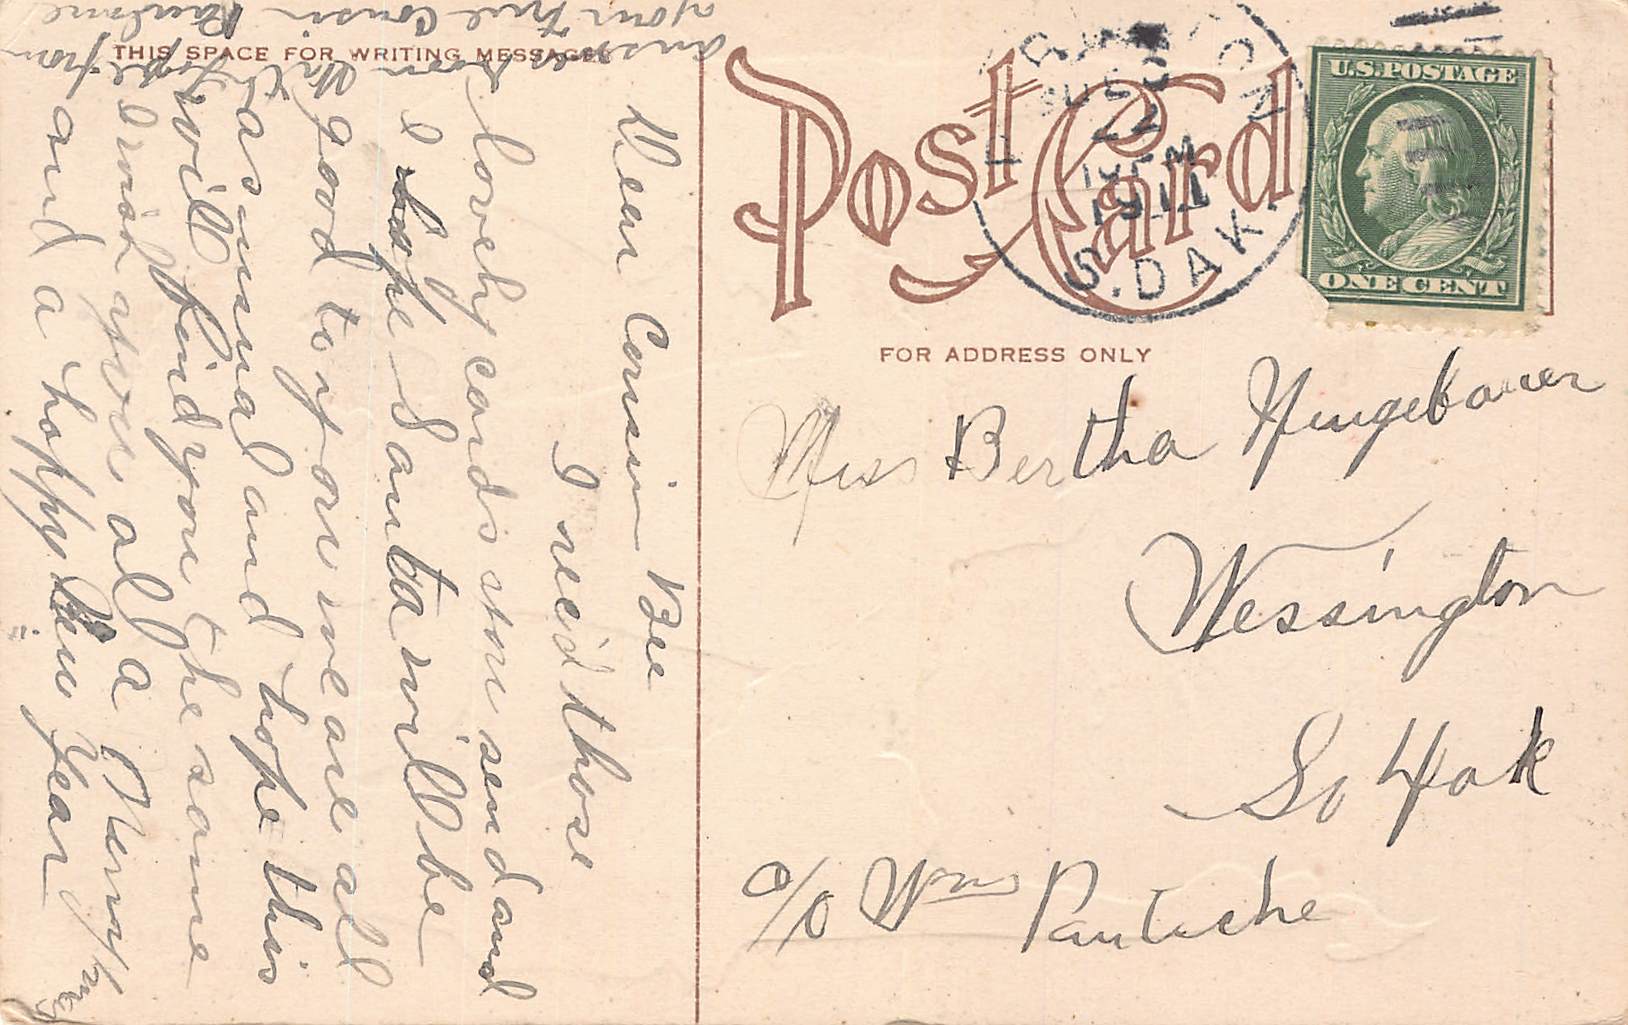 THIS SPACE FOR WRITING MESSAGES
Post Card
FOR ADDRESS ONLY
U.S. POSTAGE
ONE CENT
22
1911
S. DAK.
Dear Cousin Bee
I rec'd those
lovely cards you send and
I hope Santa will be
good to you we are all
as usual and hope this
will find you the same
I wish you all a Merry
and a happy New Year
answer soon
your true Cousin
Miss Bertha
Wessington
So Dak
c/o Wm